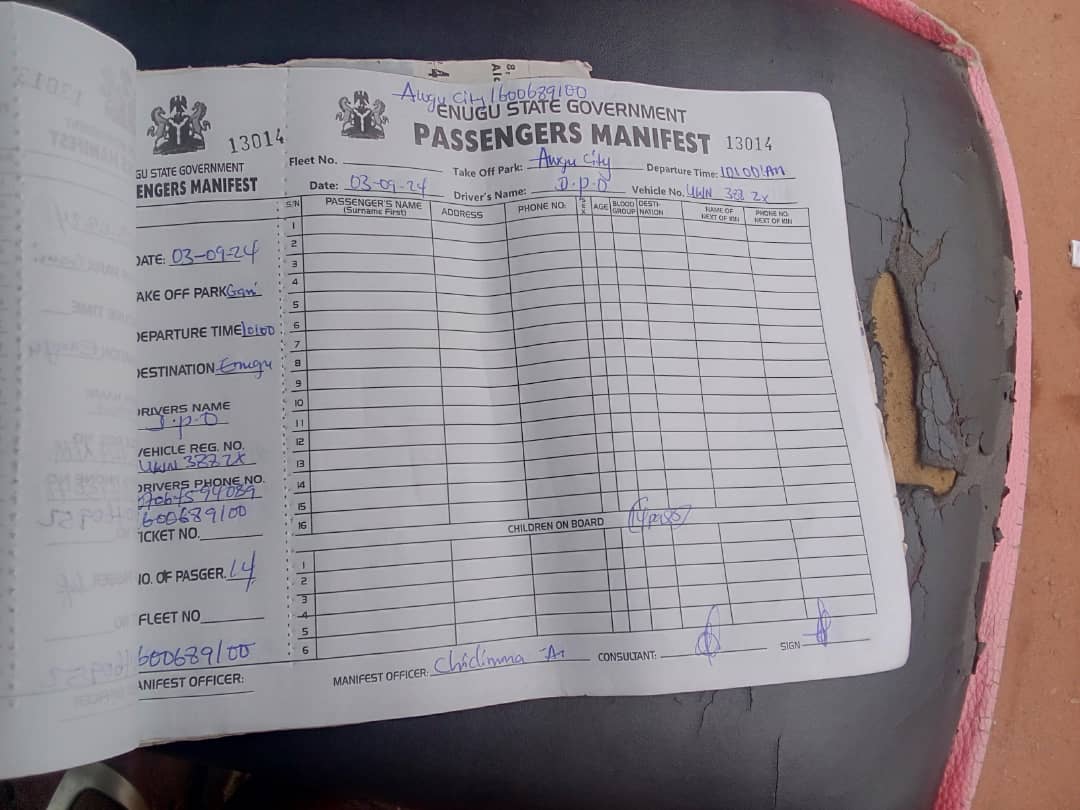 13014
GU STATE GOVERNMENT
ENGERS MANIFEST
DATE: 03-09-24
TAKE OFF PARK
DEPARTURE TIME 10:00
DESTINATION Enugu
DRIVERS NAME
D.P.O
VEHICLE REG. NO.
UWN 388 ZX
DRIVERS PHONE NO.
07064594089
1600689100
TICKET NO.
NO. OF PASGER. 14
FLEET NO
1600689100
MANIFEST OFFICER:
Awgu City 1600689100
ENUGU STATE GOVERNMENT
PASSENGERS MANIFEST 13014
Fleet No. Take Off Park: Awgu City Departure Time: 10:00 AM
Date: 03-09-24 Driver's Name: D.P.O Vehicle No. UWN 388 ZX
S/N PASSENGER'S NAME (Surname First) ADDRESS PHONE NO. SEX AGE BLOOD GROUP DESTI-NATION NAME OF NEXT OF KIN PHONE NO. NEXT OF KIN
1
2
3
4
5
6
7
8
9
10
11
12
13
14
15
16
CHILDREN ON BOARD 14pass
1
2
3
4
5
6
MANIFEST OFFICER: Chidimma A. CONSULTANT: SIGN